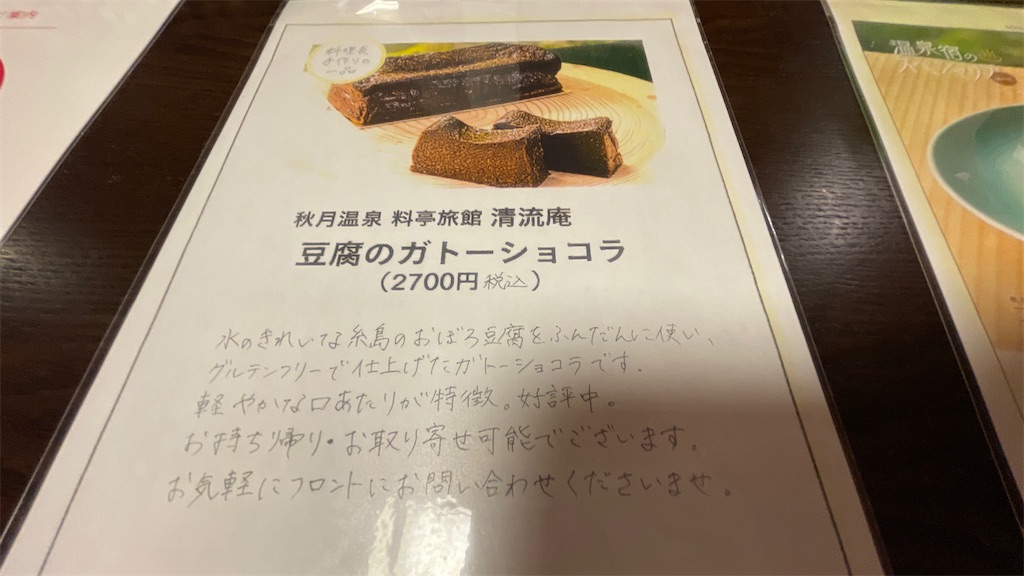 ご案内
料理長
手作りの
一品
秋月温泉 料亭旅館 清流庵
豆腐のガトーショコラ
(2700円税込)
水のきれいな糸島のおぼろ豆腐をふんだんに使い、
グルテンフリーで仕上げたガトーショコラです。
軽やかな口あたりが特徴。好評中。
お持ち帰り・お取り寄せ可能でございます。
お気軽にフロントにお問い合わせくださいませ。
温泉宿の